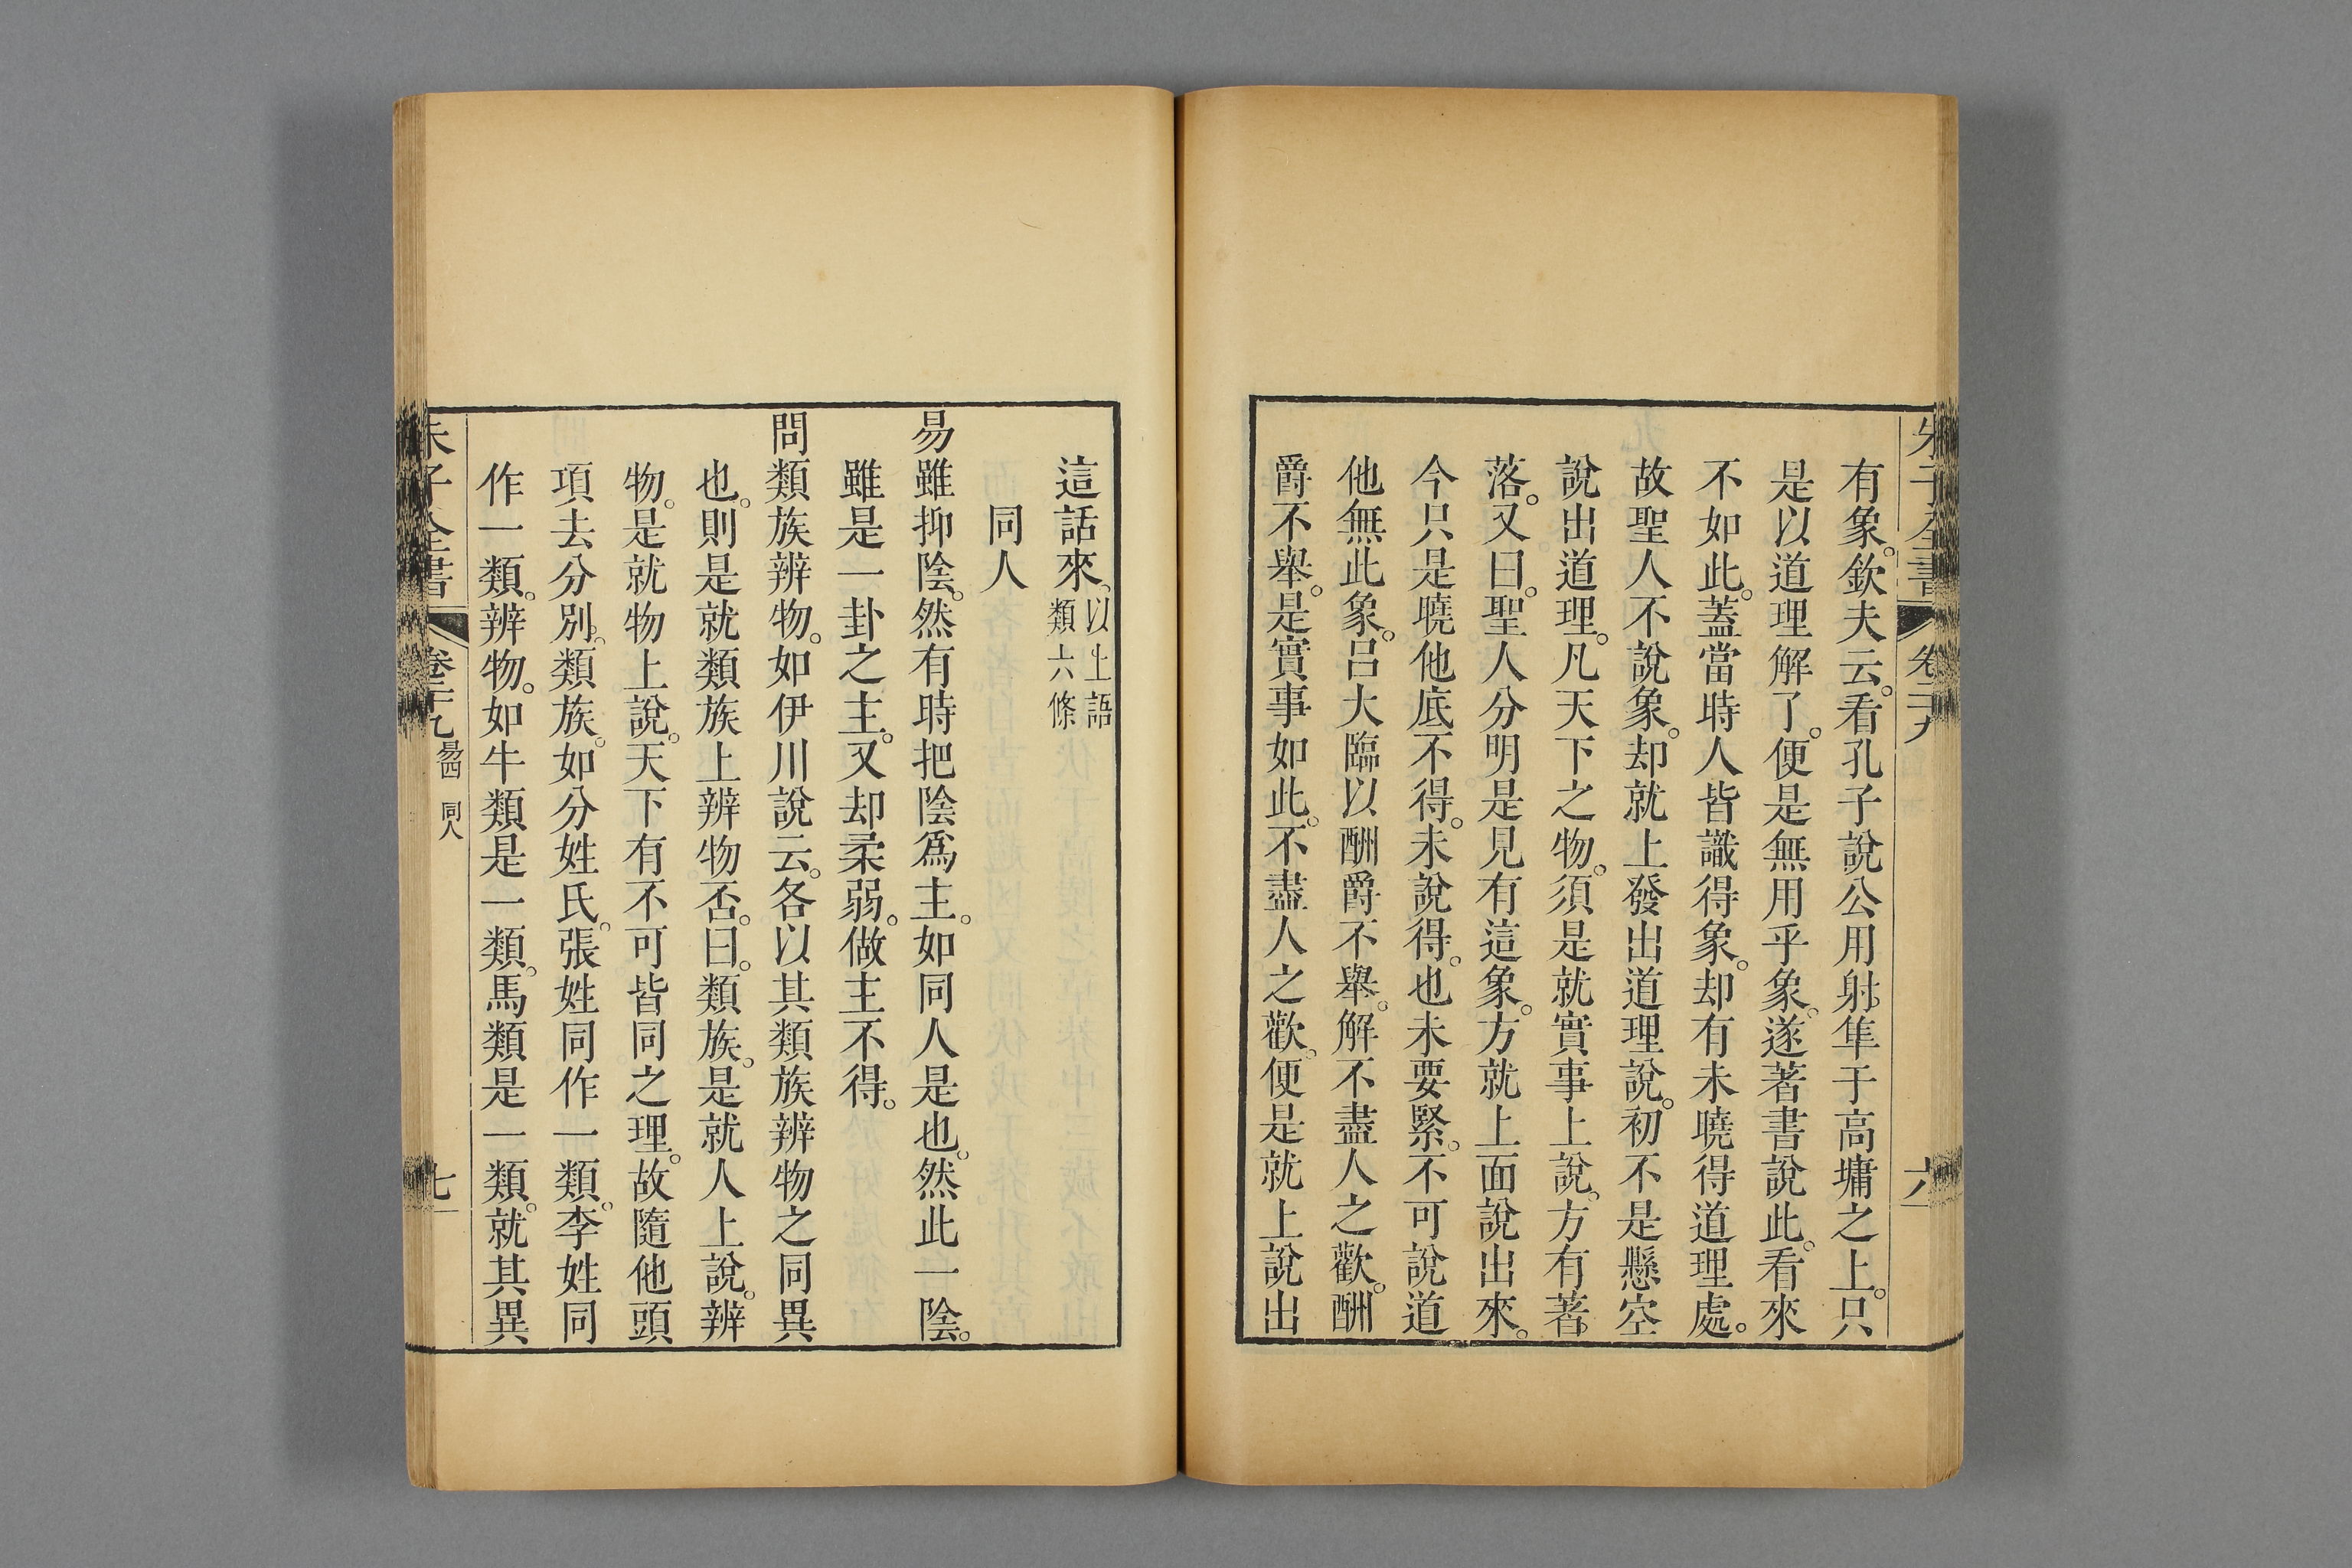 朱子全書 卷二十九 六
有象。欽夫云。看孔子說公用射隼于高墉之上。只
是以道理解了。便是無用乎象。遂著書說此。看來
不如此。蓋當時人皆識得象。却有未曉得道理處。
故聖人不說象。却就上發出道理說。初不是懸空
說出道理。凡天下之物。須是就實事上說。方有著
落。又曰。聖人分明是見有這象。方就上面說出來。
今只是曉他底不得。未說得。也未要緊。不可說道
他無此象。呂大臨以酬爵不舉。解不盡人之歡。酬
爵不舉。是實事如此。不盡人之歡。便是就上說出
這話來。以上語類六條
同人
易雖抑陰。然有時把陰爲主。如同人是也。然此一陰。
雖是一卦之主。又却柔弱。做主不得。
問類族辨物。如伊川說云。各以其類族辨物之同異
也。則是就類族上辨物否。曰。類族。是就人上說。辨
物。是就物上說。天下有不可皆同之理。故隨他頭
項去分別。類族。如分姓氏。張姓同作一類。李姓同
作一類。辨物。如牛類是一類。馬類是一類。就其異
朱子全書 卷二十九 易四 同人 七